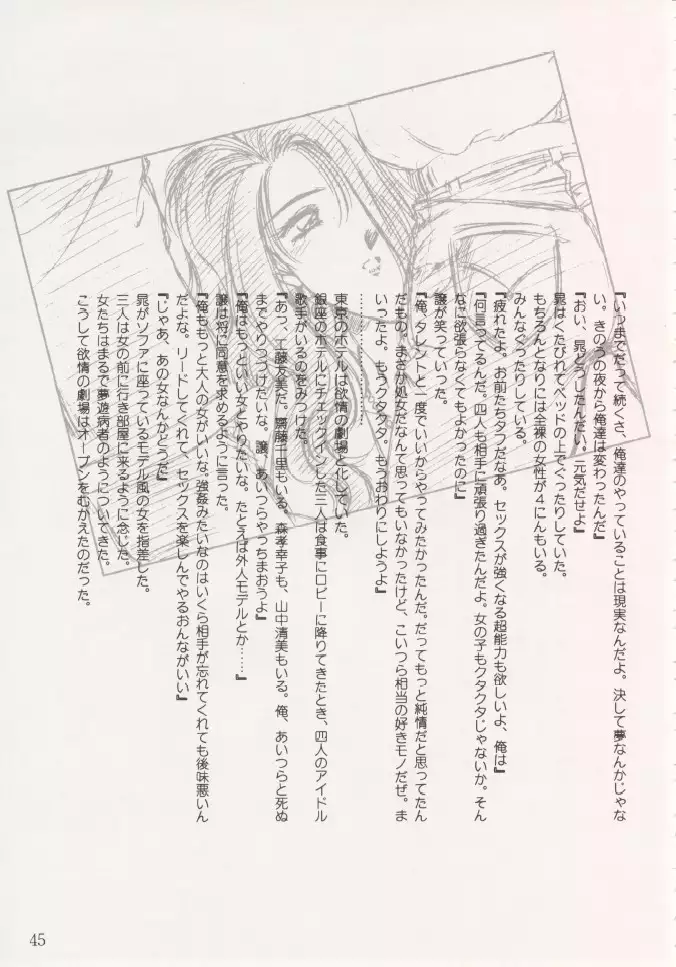 『いつまでだって続くさ、俺達のやっていることは現実なんだよ。決して夢なんかじゃな
い。きのうの夜から俺達は変わったんだ』
『おい、晃どうしたんだい。元気だせよ』
晃はくたびれてベッドの上でぐったりしていた。
もちろんとなりには全裸の女性が4にんもいる。
みんなぐったりしている。
『疲れたよ。お前たちタフだなあ。セックスが強くなる超能力も欲しいよ、俺は』
『何言ってるんだ。四人も相手に頑張り過ぎたんだよ。女の子もクタクタじゃないか。そん
なに欲張らなくてもよかったのに』
譲が笑っていった。
『俺、タレントと一度でいいからやってみたかったんだ。だってもっと純情だと思ってたん
だもの。まさか処女だなんて思ってもいなかったけど、こいつら相当の好きモノだぜ。ま
いったよ。もうクタクタ。もうおわりにしようよ』
………………
東京のホテルは欲情の劇場と化していた。
銀座のホテルにチェックインした三人は食事にロビーに降りてきたとき、四人のアイドル
歌手がいるのをみつけた。
『あっ、工藤友美だ。齋藤千里もいる。森孝幸子も、山中清美もいる。俺、あいつらと死ぬ
までやりつづけたいな。譲、あいつらやっちまおうよ』
『俺はもっといい女とやりたいな。たとえば外人モデルとか……』
譲は将に同意を求めるように言った。
『俺ももっと大人の女がいいな。強姦みたいなのはいくら相手が忘れてくれても後味悪いん
だよな。リードしてくれて、セックスを楽しんでやるおんながいい』
『じゃあ、あの女なんかどうだ』
晃がソファに座っているモデル風の女を指差した。
三人は女の前に行き部屋に来るように念じた。
女たちはまるで夢遊病者のようについてきた。
こうして欲情の劇場はオープンをむかえたのだった。
45